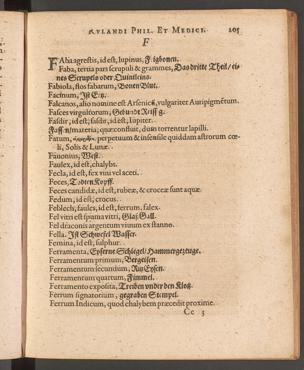 RVLANDI PHIL. ET MEDICI. 205
F
FAba agrestis, id est, lupinus, Figbonen.
Faba, tertia pars scrupuli & grammes, Das dritte Theil / ei-
nes Scrupels oder Quintleins.
Fabiola, flos fabarum, Bonen Blut.
Facinum, Ist Ertz.
Falcanos, alio nomine est Arsenicũ, vulgariter Auripigmētum.
Fasces virgultorum,
Fasdir, id est; fasdir, id est, Iupiter.
materia, quæ confluit, dum torrentur lapilli.
Fatum, perpetuum & insensile quiddam astrorum cœ-
li, Solis & Lunæ.
Fauonius, West.
Faulex, id est, chalybs.
Fecla, id est, fex vini vel aceti.
Feces, Todten Kopff.
Feces candidæ, id est, rubeæ, & croceæ sunt aquæ.
Fedum, id est, crocus.
Feblech, faules, id est, ferrum, falex.
Fel vitri est spuma vitri, Glaß Gall.
Fel draconis argentum viuum ex stanno.
Fella. Ist Schwefel Wasser.
Femina, id est, sulphur.
Ferramenta, Eyserne Schlegel / Hammergezeuge.
Ferramentum primum, Bergeisen.
Ferramentum secundum,
Ferramentum quartum, Fimmel.
Ferramento exposita, Treiben vnder den Klotz.
Ferrum signatorium, gegraben Stempel.
Ferrum Indicum, quod chalybem præcedit proxime.
Cc 3